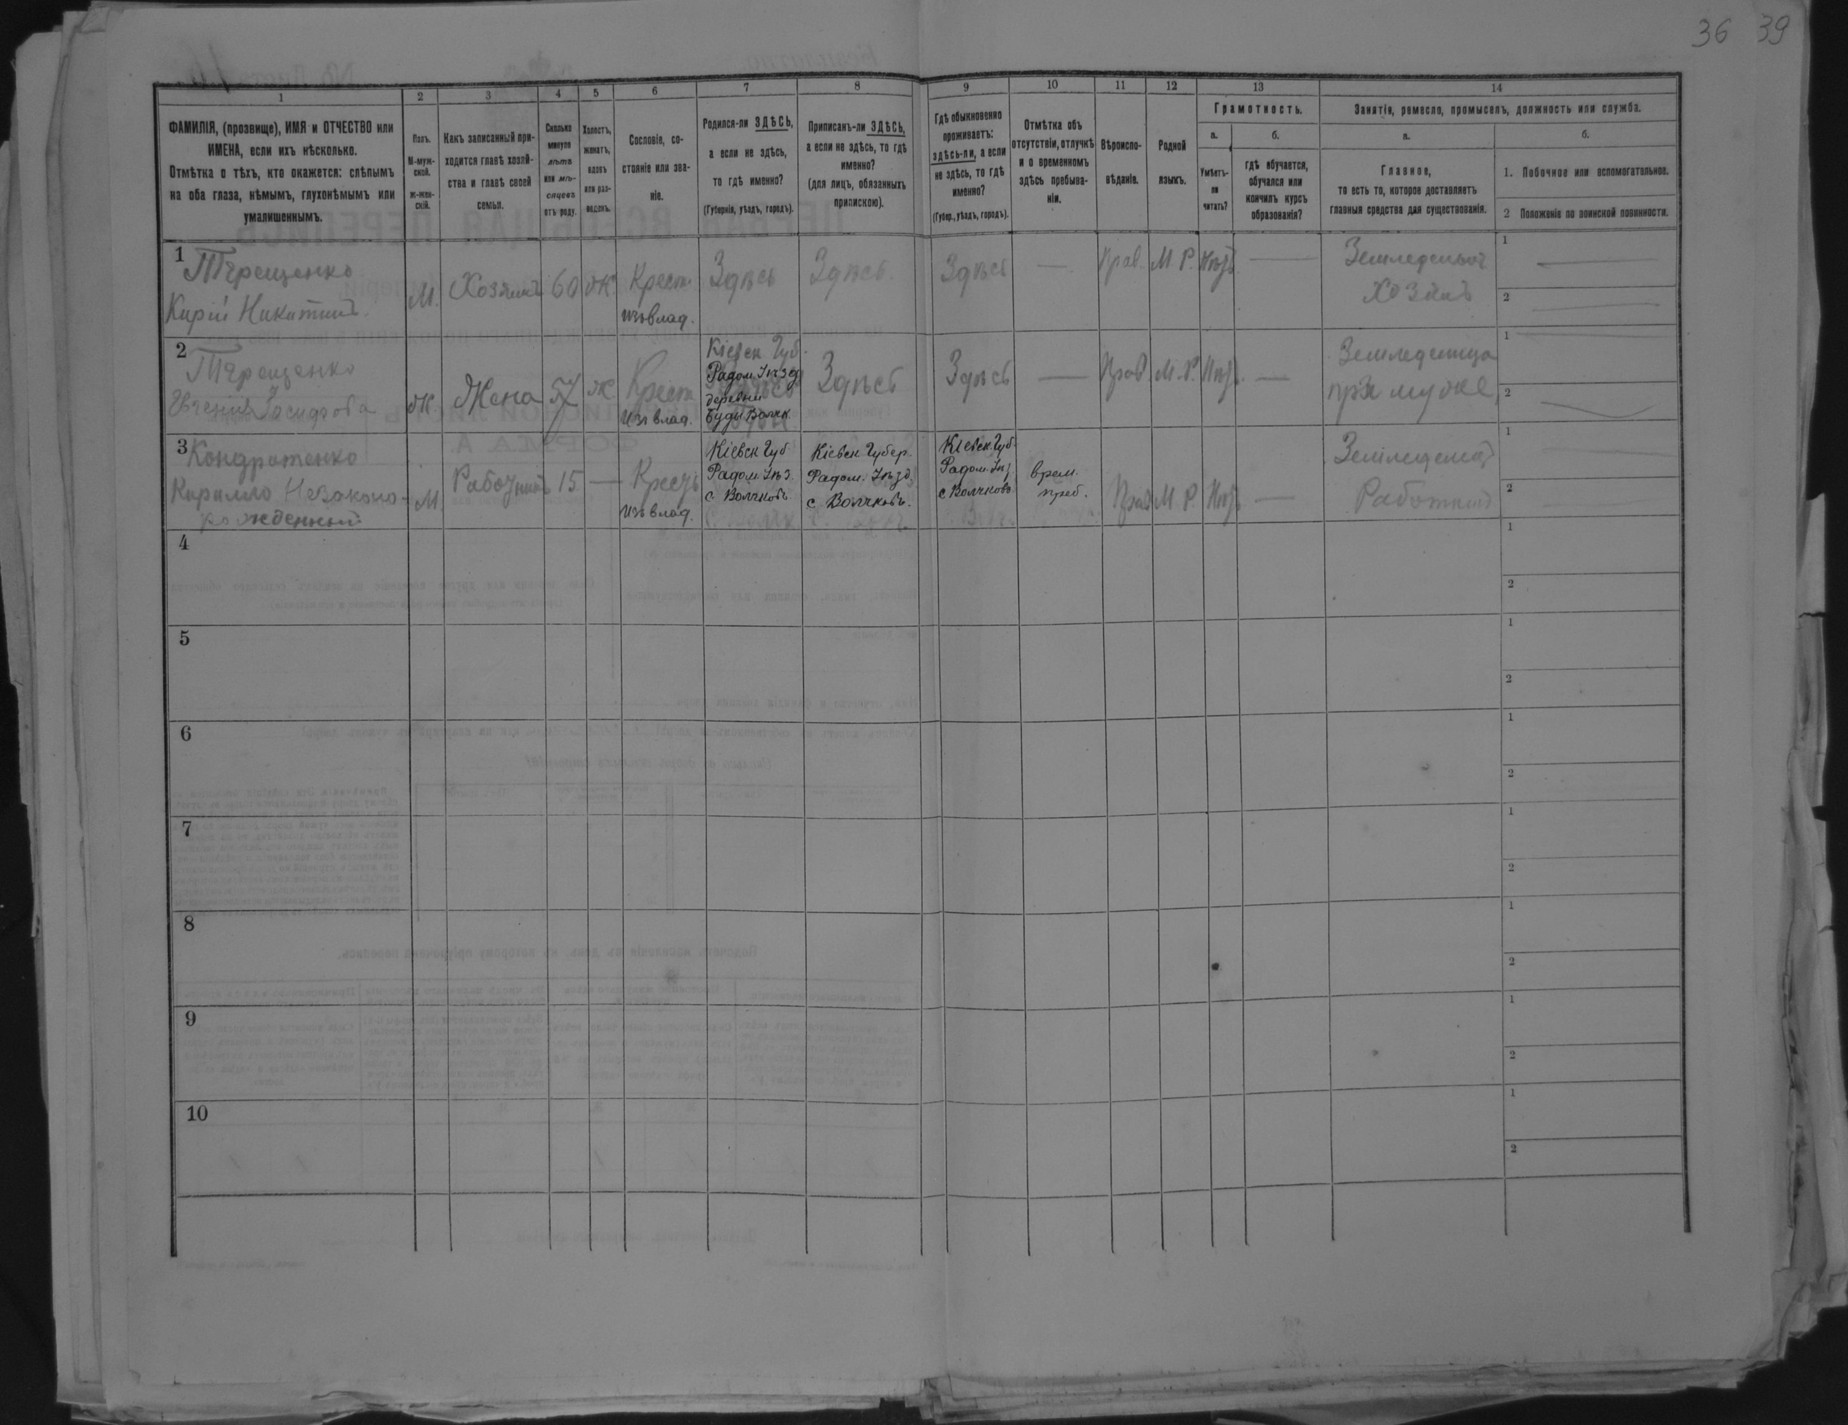 36 39
1 2 3 4 5 6 7 8 9 10 11 12 13 14
ФАМИЛІЯ, (прозвище), ИМЯ и ОТЧЕСТВО или
ИМЕНА, если ихъ нѣсколько.
Отмѣтка о тѣхъ, кто окажется: слѣпымъ
на оба глаза, нѣмымъ, глухонѣмымъ или
умалишеннымъ.
Полъ.
М-муж-
ской.
Ж-жен-
скій.
Какъ записанный при-
ходится главѣ хозяй-
ства и главѣ своей
семьи.
Сколько
минуло
лѣтъ
или мѣ-
сяцевъ
отъ роду.
Холостъ,
женатъ,
вдовъ
или раз-
веденъ.
Сословіе, со-
стояніе или зва-
ніе.
Родился-ли ЗДѢСЬ,
а если не здѣсь,
то гдѣ именно?
(Губернія, уѣздъ, городъ).
Приписанъ-ли ЗДѢСЬ,
а если не здѣсь, то гдѣ
именно?
(для лицъ, обязанныхъ
припискою).
Гдѣ обыкновенно
проживаетъ:
здѣсь-ли, а если
не здѣсь, то гдѣ
именно?
(Губер., уѣздъ, городъ).
Отмѣтка объ
отсутствіи, отлучкѣ
и о временномъ
здѣсь пребыва-
ніи.
Вѣроиспо-
вѣданіе.
Родной
языкъ.
Грамотность.
а.
Умѣетъ-
ли
читать?
б.
гдѣ обучается,
обучался или
кончилъ курсъ
образованія?
Занятія, ремесло, промыселъ, должность или служба.
а.
Главное,
то есть то, которое доставляетъ
главныя средства для существованія.
б.
1. Побочное или вспомогательное.
2 Положеніе по воинской повинности.
1
Терещенко
Кирій Никитинъ
М.
Хозяинъ
60
Ж
Крест.
изъ влад.
Здѣсь
Здѣсь.
Здѣсь
—
Прав.
М Р
Нѣтъ
—
Земледелецъ
Хозяинъ
1
2
2
Терещенко
Евгенія
Ж
Жена
57
Ж
Крест
Изъ влад.
Кіевск Губ.
Радом Уѣзд
деревни
Здѣсь
Здѣсь
—
Прав
М. Р
Нѣтъ
—
при мужѣ
1
2
3
Кондратенко
Кирилло Незаконо-
рожденный
М
Работникъ
15
—
Крест
изъ влад.
Кіевск Губ
Радом Уѣз.
с Волчковъ
Кіевск Губер.
Радом. Уѣзд.
с Волчковъ.
Кіевск. Губ.
Радом. Уѣз
с Волчковъ
врем.
преб.
Прав
М. Р
Нѣтъ
—
Работникъ
1
2
4
1
2
5
1
2
6
1
2
7
1
2
8
1
2
9
1
2
10
1
2